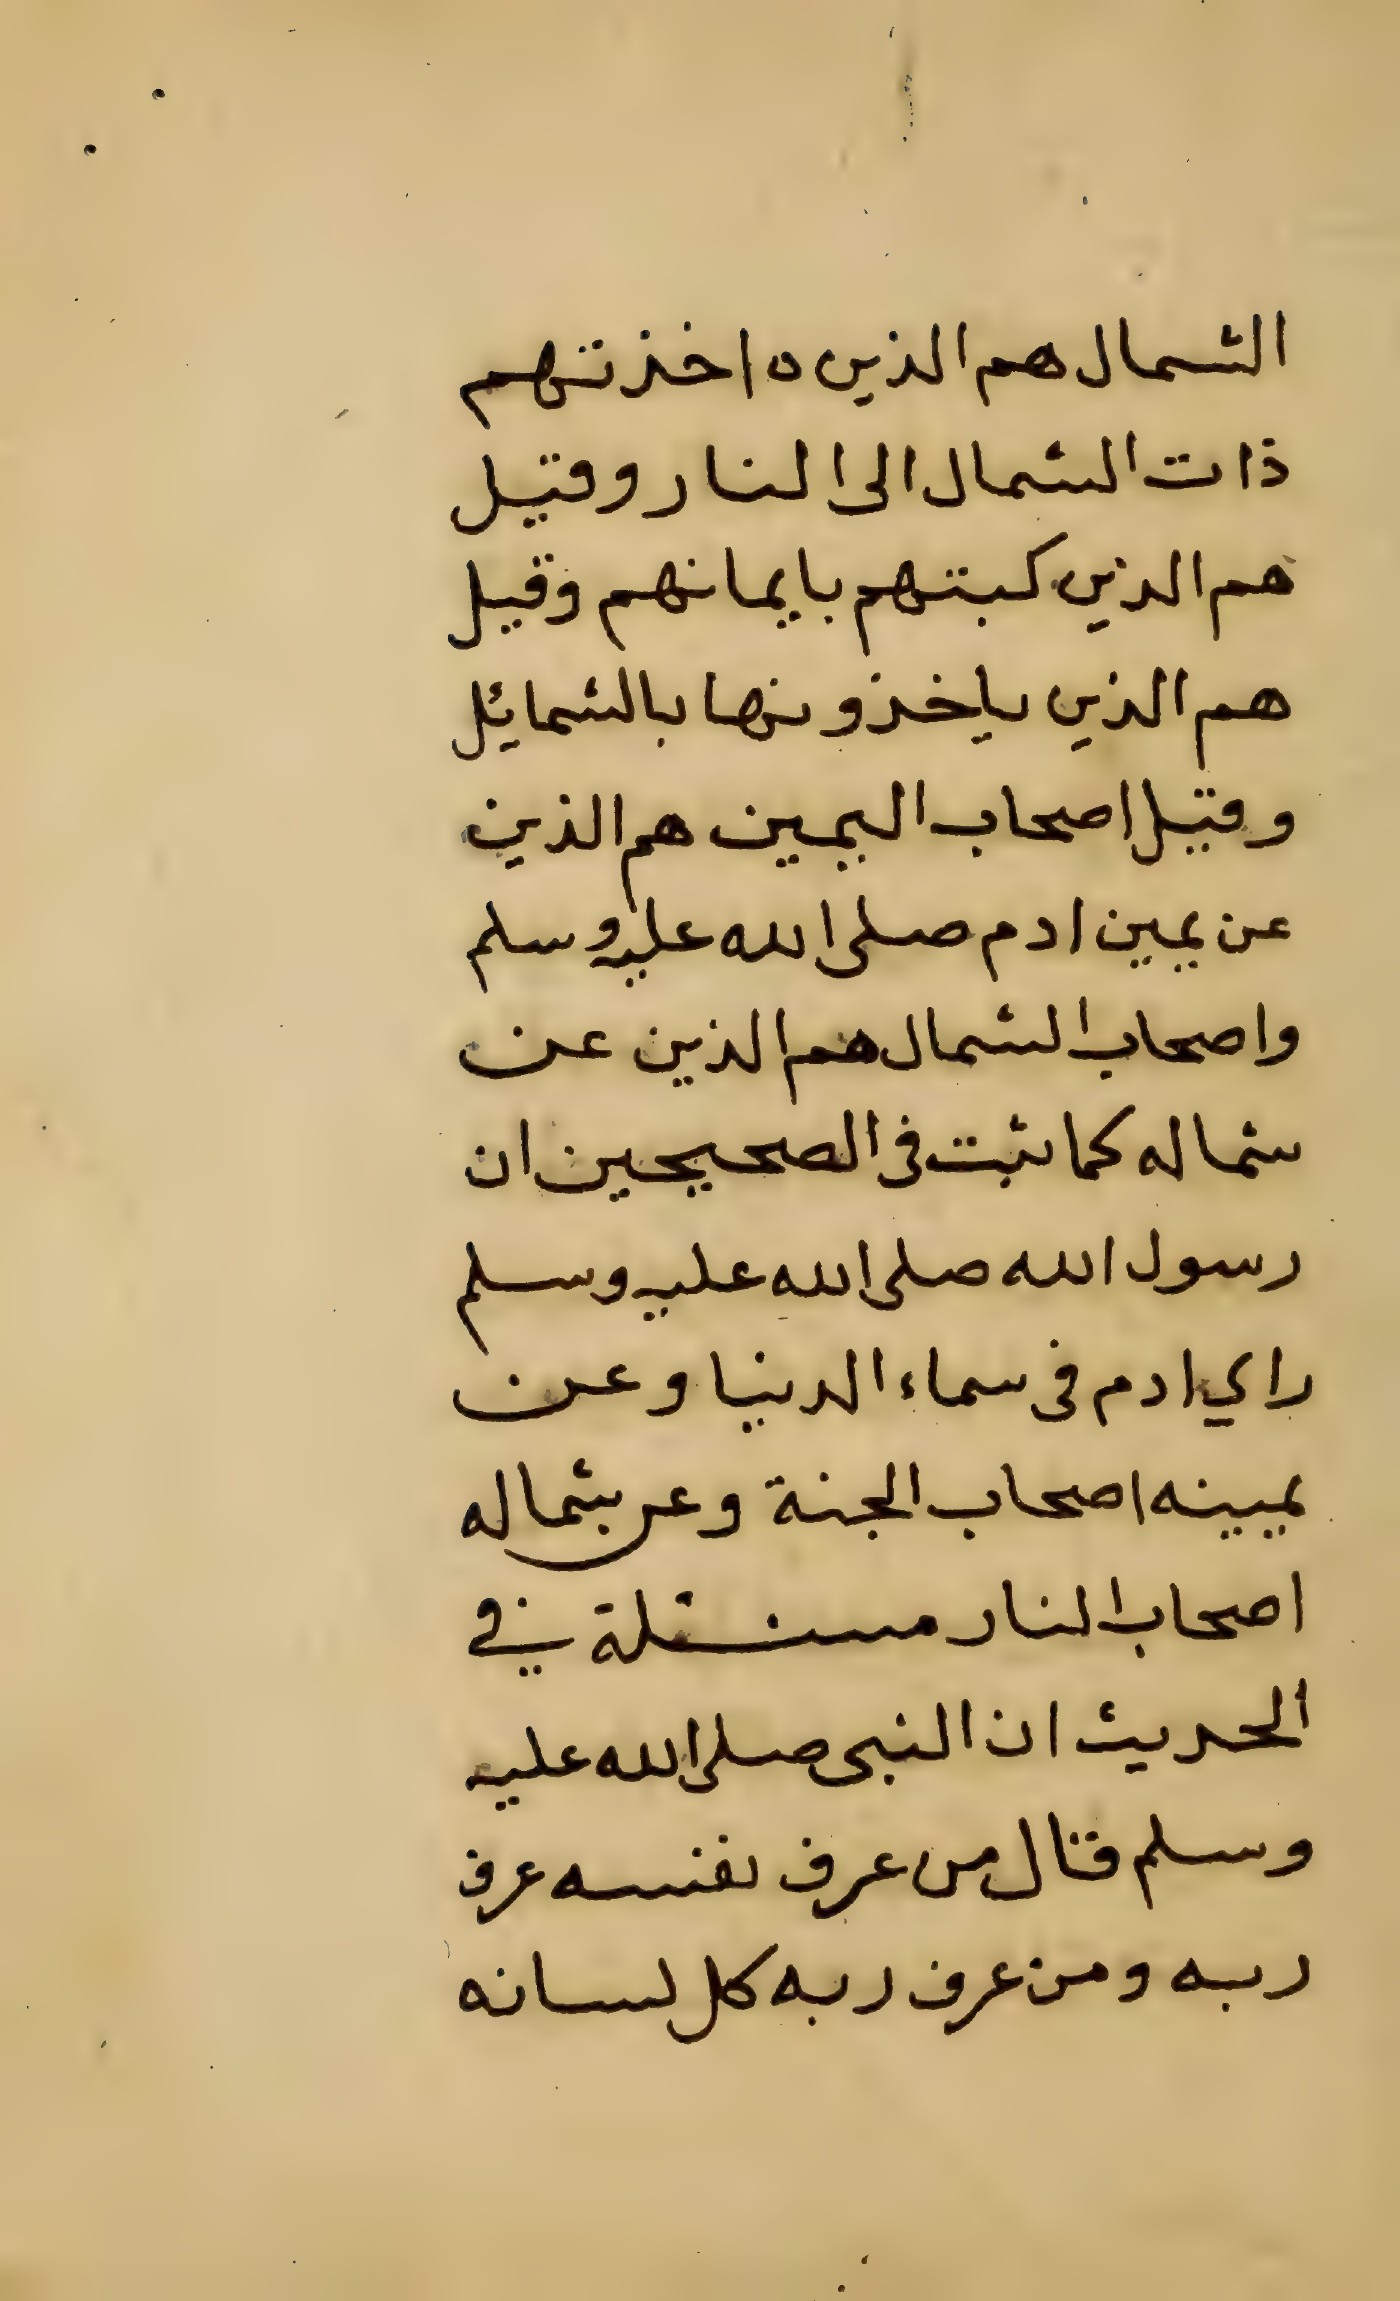 الشمال هم الذين ه اخذتهم
ذات الشمال الى النار وقيل
هم الذين كبتهم بايمانهم وقيل
هم الذين ياخذونها بالشمايئل
وقيل اصحاب اليمين هم الذين
عن يمين ادم صلى الله عليه وسلم
واصحاب الشمال هم الذين عن
شماله كما ثبت فى الصحيحين ان
رسول الله صلى الله عليه وسلم
راي ادم فى سماء الدنيا وعن
يمينه اصحاب الجنة وعن شماله
اصحاب النار مسئلة في
الحديث ان النبى صلى الله عليه
وسلم قال من عرف نفسه عرف
ربه ومن عرف ربه كل لسانه